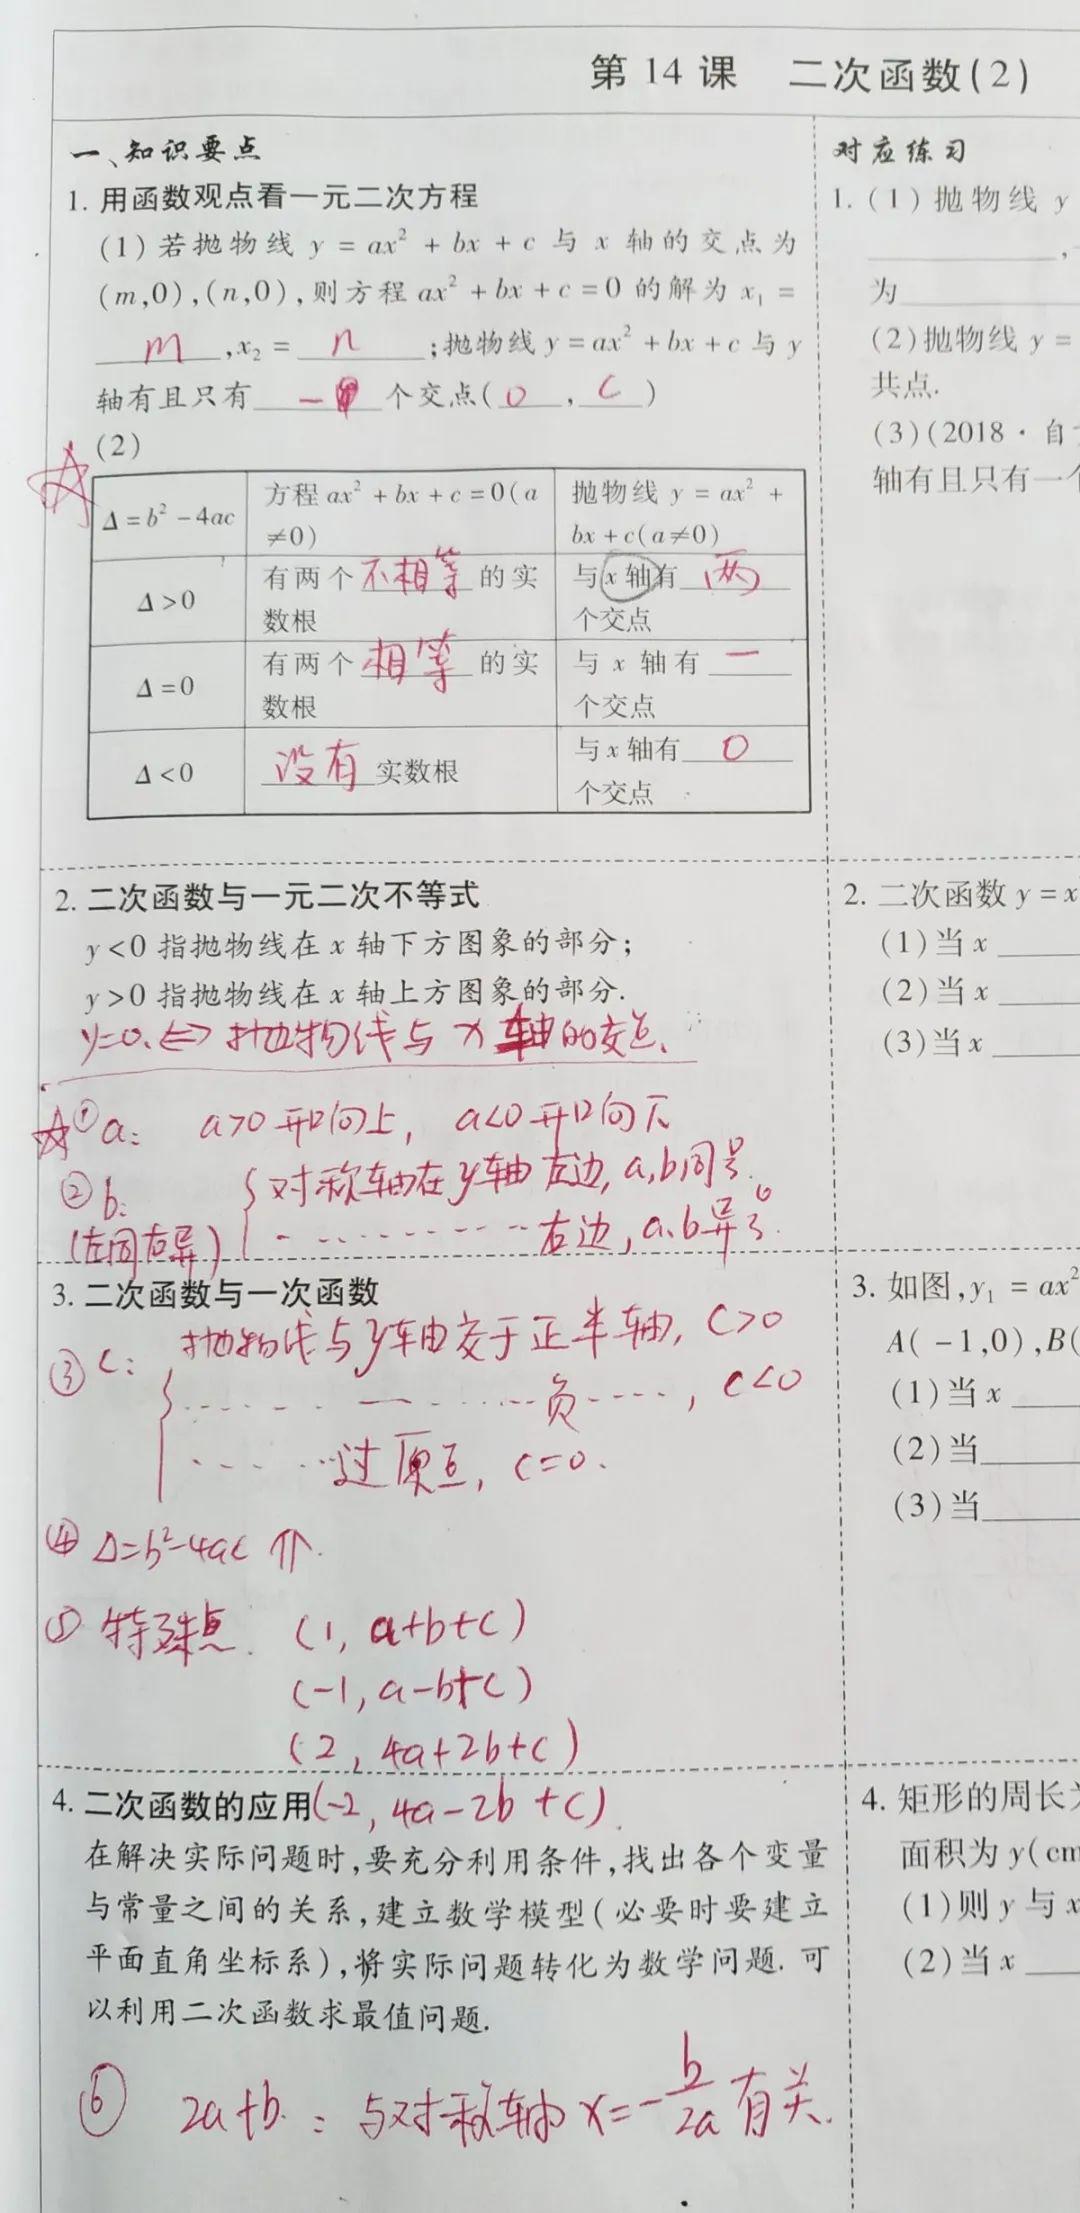 第 14 课 二次函数(2)
一、知识要点
1. 用函数观点看一元二次方程
(1)若抛物线 y = ax² + bx + c 与 x 轴的交点为
(m,0),(n,0),则方程 ax² + bx + c = 0 的解为 x₁ =
m ,x₂ = n ;抛物线 y = ax² + bx + c 与 y
轴有且只有 一 个交点( 0 , c )
(2)
Δ = b² - 4ac
方程 ax² + bx + c = 0(a
≠0)
抛物线 y = ax² +
bx + c(a≠0)
Δ>0
有两个 不相等 的实
数根
与 x 轴有 两
个交点
Δ=0
有两个 相等 的实
数根
与 x 轴有 一
个交点
Δ<0
没有 实数根
与 x 轴有 0
个交点
2. 二次函数与一元二次不等式
y<0 指抛物线在 x 轴下方图象的部分;
y>0 指抛物线在 x 轴上方图象的部分.
y=0. ⇔ 抛物线与 x 轴的交点.
① a: a>0 开口向上, a<0 开口向下
② b: 对称轴在y轴左边, a,b同号.
(左同右异) - ········ 右边, a.b异号.
3. 二次函数与一次函数
③ c: 抛物线与y轴交于正半轴, c>0
······ — ······ 负 ····, c<0
······ 过原点, c=0.
④ Δ=b²-4ac ⇑.
⑤ 特殊点. (1, a+b+c)
(-1, a-b+c)
(2, 4a+2b+c)
4. 二次函数的应用 (-2, 4a-2b+c).
在解决实际问题时,要充分利用条件,找出各个变量
与常量之间的关系,建立数学模型(必要时要建立
平面直角坐标系),将实际问题转化为数学问题. 可
以利用二次函数求最值问题.
⑥ 2a+b. : 与对称轴 x=-b/2a 有关.
对应练习
1. (1)抛物线 y
,
为
(2)抛物线 y =
共点.
(3)(2018·自
轴有且只有一个
2. 二次函数 y = x
(1)当 x
(2)当 x
(3)当 x
3. 如图,y₁ = ax²
A(-1,0),B(
(1)当 x
(2)当
(3)当
4. 矩形的周长为
面积为 y(cm
(1)则 y 与 x
(2)当 x